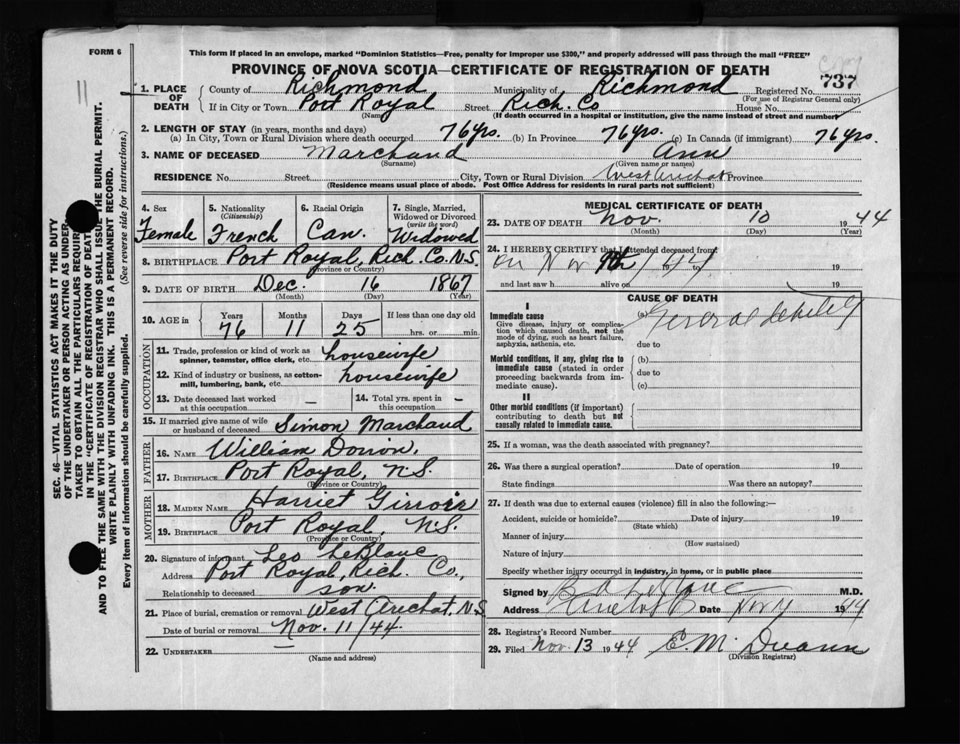 FORM 6
This form if placed in an envelope, marked "Dominion Statistics—Free, penalty for improper use $300," and properly addressed will pass through the mail "FREE"
PROVINCE OF NOVA SCOTIA—CERTIFICATE OF REGISTRATION OF DEATH
737
11
1. PLACE OF DEATH County of Richmond Municipality of Richmond Registered No.
(For use of Registrar General only)
If in City or Town Port Royal Street Rich. Co House No.
(Name) (If death occurred in a hospital or institution, give the name instead of street and number)
2. LENGTH OF STAY (in years, months and days)
(a) In City, Town or Rural Division where death occurred 76 yrs. (b) In Province 76 yrs. (c) In Canada (if immigrant) 76 yrs.
3. NAME OF DECEASED Marchand Ann
(Surname) (Given name or names)
RESIDENCE No. Street City, Town or Rural Division West Arichat Province
(Residence means usual place of abode. Post Office Address for residents in rural parts not sufficient)
4. Sex Female
5. Nationality (Citizenship) French
6. Racial Origin Can.
7. Single, Married, Widowed or Divorced (write the word) Widowed
8. BIRTHPLACE Port Royal, Rich. Co. N.S.
(Province or Country)
9. DATE OF BIRTH Dec. 16 1867
(Month) (Day) (Year)
10. AGE in Years Months Days If less than one day old
76 11 25 hrs. or min.
OCCUPATION
11. Trade, profession or kind of work as spinner, teamster, office clerk, etc. housewife
12. Kind of industry or business, as cotton-mill, lumbering, bank, etc. housewife
13. Date deceased last worked at this occupation –
14. Total yrs. spent in this occupation –
15. If married give name of wife or husband of deceased Simon Marchand
FATHER
16. NAME William Dorion,
17. BIRTHPLACE Port Royal, N.S.
(Province or Country)
MOTHER
18. MAIDEN NAME Harriet Girroir
19. BIRTHPLACE Port Royal, N.S.
(Province or Country)
20. Signature of informant Leo LeBlanc
Address Port Royal, Rich. Co.,
Relationship to deceased son.
21. Place of burial, cremation or removal West Arichat, N.S.
Date of burial or removal Nov. 11/44.
22. UNDERTAKER –
(Name and address)
MEDICAL CERTIFICATE OF DEATH
23. DATE OF DEATH Nov. 10 1944
(Month) (Day) (Year)
24. I HEREBY CERTIFY that I attended deceased from
on Nov 9th/44 19 to 19
and last saw h alive on 19
CAUSE OF DEATH
I
Immediate cause
Give disease, injury or complication which caused death, not the mode of dying, such as heart failure, asphyxia, asthenia, etc.
(a) General debility
due to
Morbid conditions, if any, giving rise to immediate cause (stated in order proceeding backwards from immediate cause).
(b)
due to
(c)
II
Other morbid conditions (if important) contributing to death but not causally related to immediate cause.
25. If a woman, was the death associated with pregnancy?
26. Was there a surgical operation? Date of operation 19
State findings Was there an autopsy?
27. If death was due to external causes (violence) fill in also the following:—
Accident, suicide or homicide? Date of injury 19
(State which)
Manner of injury
(How sustained)
Nature of injury
Specify whether injury occurred in industry, in home, or in public place
Signed by B A LeBlanc M.D.
Address Arichat Date Nov 1944
28. Registrar's Record Number
29. Filed Nov. 13 1944 E. M.
(Division Registrar)
SEC. 46—VITAL STATISTICS ACT MAKES IT THE DUTY
OF THE UNDERTAKER OR PERSON ACTING AS UNDER-
TAKER TO OBTAIN ALL THE PARTICULARS REQUIRED
IN THE "CERTIFICATE OF REGISTRATION OF DEATH"
AND TO FILE THE SAME WITH THE DIVISION REGISTRAR WHO SHALL ISSUE THE BURIAL PERMIT.
WRITE PLAINLY WITH UNFADING INK. THIS IS A PERMANENT RECORD.
Every item of information should be carefully supplied. (See reverse side for instructions.)